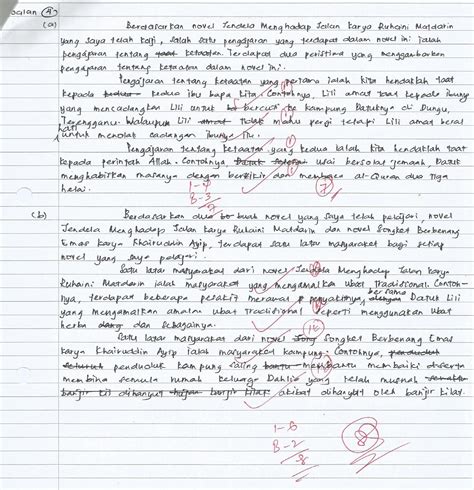 Soalan 4
(a) Berdasarkan novel Jendela Menghadap Jalan karya Ruhaini Matdarin
yang saya telah kaji, salah satu pengajaran yang terdapat dalam novel ini ialah
pengajaran tentang taat ketaatan. Terdapat dua peristiwa yang menggambarkan
pengajaran tentang ketaatan dalam novel ini.
Pengajaran tentang ketaatan yang pertama ialah kita hendaklah taat
kepada kedua kedua ibu bapa kita. Contohnya, Lili amat taat kepada ibunya
yang mencadangkan Lili untuk bercuti ke kampung Datuknya di Dungun,
Terengganu. Walaupun Lili amat tidak mahu pergi tetapi Lili amat berat
hati untuk menolak cadangan ibunya itu.
Pengajaran tentang ketaatan yang kedua ialah kita hendaklah taat
kepada perintah Allah. Contohnya, usai bersolat jemaah, Datuk
menghabiskan masanya dengan berzikir dan membaca al-Quran dua tiga
helai.
1-4
B-3
7
7
(b) Berdasarkan dua buah novel yang saya telah pelajari, novel
Jendela Menghadap Jalan karya Ruhaini Matdarin dan novel Songket Berbenang
Emas karya Khairuddin Ayip, terdapat satu latar masyarakat bagi setiap
novel yang saya pelajari.
Satu latar masyarakat dari novel Jendela Menghadap Jalan karya
Ruhaini Matdarin ialah masyarakat yang mengamalkan ubat Tradisional. Contoh-
nya, terdapat beberapa pesakit merawat penyakitnya, dengan bersama Datuk Lili
yang mengamalkan amalan ubat tradisional seperti menggunakan ubat
herba dan sebagainya.
Satu latar masyarakat dari novel Songket Berbenang Emas
karya Khairuddin Ayip ialah masyarakat kampung. Contohnya, penduduk
seluruh penduduk kampung saling bantu membantu membaiki deserta
membina semula rumah keluarga Dahlia yang telah musnah
banjir kil dihanyut banjir kilat akibat dihanyut oleh banjir kilat.
1-6
B-2
8
8